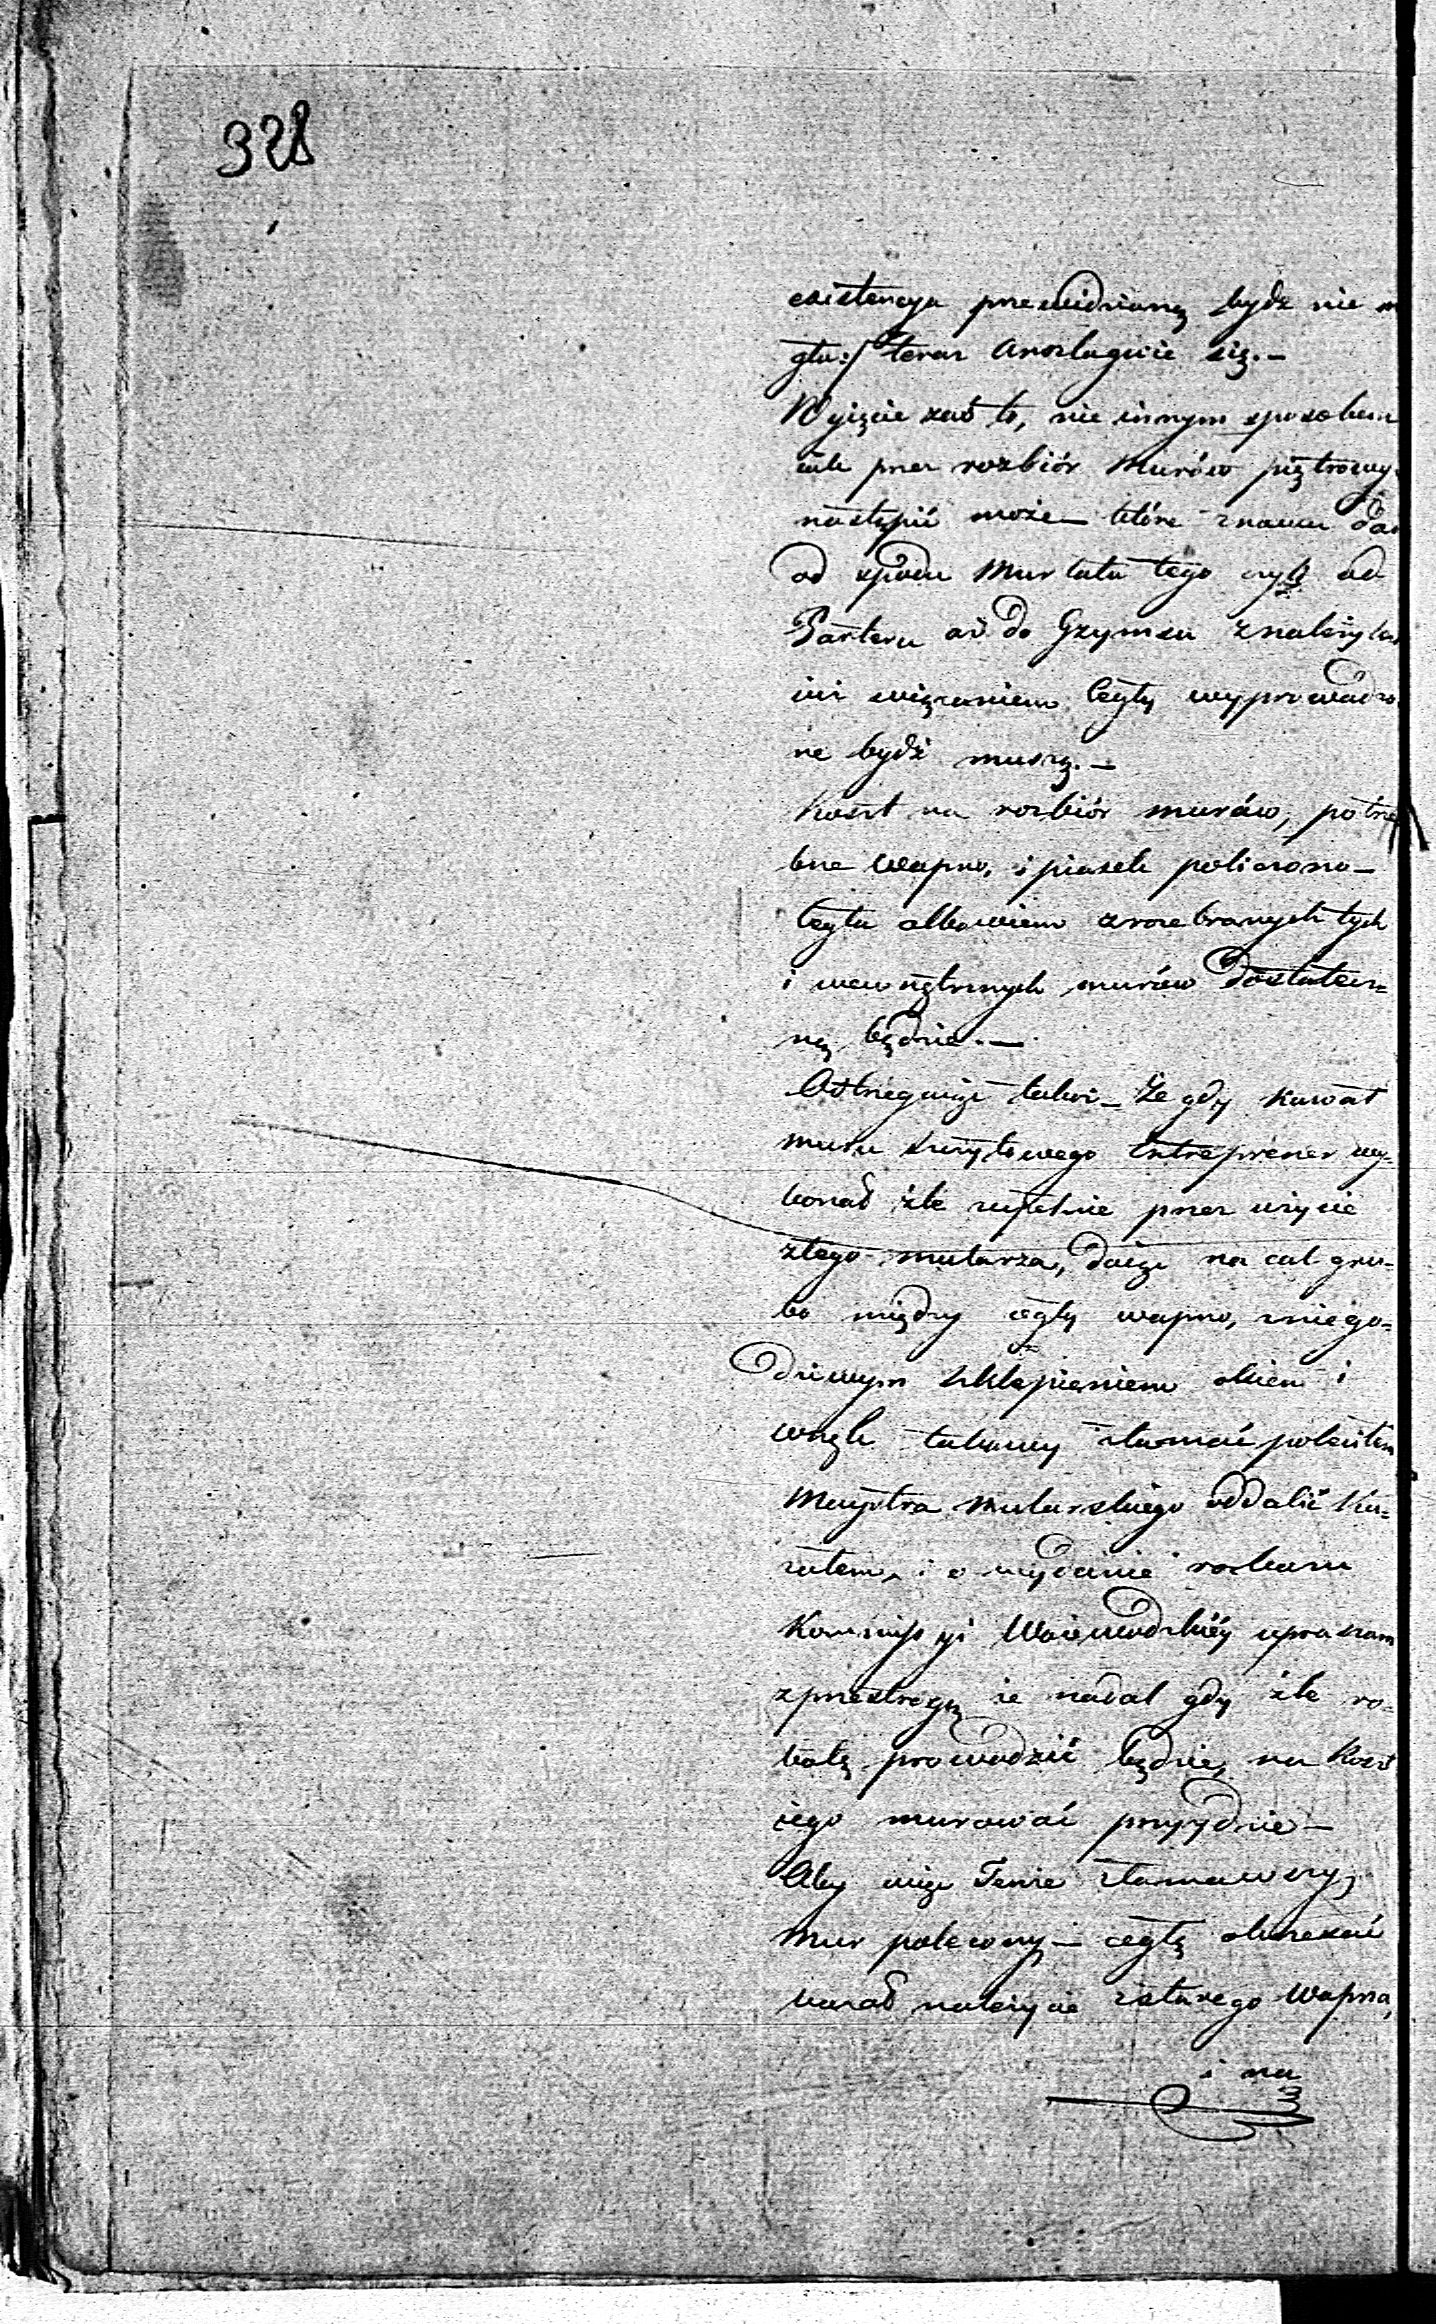 328
existencya przewidzianą bydź nie m
gła:/ teraz
Wyięcie zaś to, nie innym sposobem
iak przez rozbiór Murów piętrowy
nastąpić może – które znowu
od spodu Murłatu tego czyli od
Parteru aż do Gzymsu z należytem
iuż wiązaniem Cegły wyprowadzo
ne bydź muszą. –
Koszt na rozbiór murów, potrze
bne wapno, i piasek policzono –
Cegła albowiem z rozebranych tych
i wewnętrznych murów dostatecz=
ną będzie. –
Ostrzegaiąc także – że gdy kawał
muru szczytowego Entreprener wy=
konał źle zupełnie przez użycie
złego mularza, daiąc na cal gru=
bo między cegły wapno, z niego=
dziwym sklepieniem okien i
węgli takowy złamać poleciłem
Maystra Mularskiego oddalić ka=
załem, i o wydanie rozkazu
Kommissyi Woiewodzkiéy upraszam
z przestrogą że nadal gdy źle ro=
botę prowadzić będzie, na koszt
iego murować przyydzie –
Aby więc Tenże złamawszy,
Mur polecony – cegłę okrzesać
kazał należycie z starego Wapna,
i na